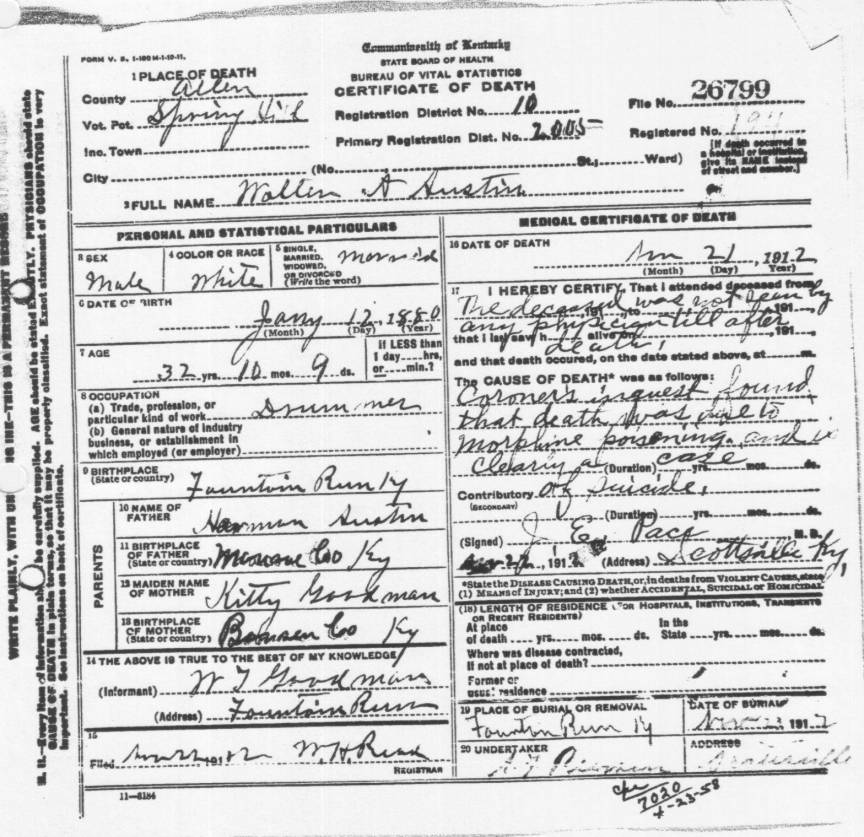 Commonwealth of Kentucky
FORM V. S. 1-100 M-1-10-11.
STATE BOARD OF HEALTH
BUREAU OF VITAL STATISTICS
CERTIFICATE OF DEATH
1 PLACE OF DEATH
County Allen
Vot. Pct. Spring Hill
Inc. Town
City
(No. St.; Ward)
Registration District No. 10
Primary Registration Dist. No. 2005
File No. 26799
Registered No.
[If death occurred in
a hospital or institution,
give its NAME instead
of street and number.]
2 FULL NAME Walter A Austin
PERSONAL AND STATISTICAL PARTICULARS
3 SEX
Male
4 COLOR OR RACE
White
5 SINGLE,
MARRIED,
WIDOWED,
OR DIVORCED
(Write the word)
Married
6 DATE OF BIRTH
Jany 12 1880
(Month) (Day) (Year)
7 AGE
32 yrs. 10 mos. 9 ds.
If LESS than
1 day....hrs,
or....min.?
8 OCCUPATION
(a) Trade, profession, or
particular kind of work Drummer
(b) General nature of industry
business, or establishment in
which employed (or employer)
9 BIRTHPLACE
(State or country)
Fountain Run Ky
PARENTS
10 NAME OF
FATHER
Herman Austin
11 BIRTHPLACE
OF FATHER
(State or country)
Monroe Co Ky
12 MAIDEN NAME
OF MOTHER
Kitty Goodman
13 BIRTHPLACE
OF MOTHER
(State or country)
Co Ky
14 THE ABOVE IS TRUE TO THE BEST OF MY KNOWLEDGE
(Informant) W T Goodman
(Address) Fountain Run
15
Filed Nov 22 1912 W. H. Read
REGISTRAR
11-8184
MEDICAL CERTIFICATE OF DEATH
16 DATE OF DEATH
Nov 21, 1912
(Month) (Day) (Year)
17 I HEREBY CERTIFY, That I attended deceased from
The deceased was not seen by
, 191 , to , 191
any physician till after
that I last saw h alive on , 191
death,
and that death occured, on the date stated above, at m.
The CAUSE OF DEATH* was as follows:
Coroner's inquest found
that death was due to
morphine poisoning and is
clearly a case
(Duration) yrs. mos. ds.
Contributory of suicide,
(SECONDARY)
(Duration) yrs. mos. ds.
(Signed) J E Pace M. D.
Nov 22, 1912 (Address) Scottsville Ky,
*State the DISEASE CAUSING DEATH, or, in deaths from VIOLENT CAUSES, state
(1) MEANS OF INJURY; and (2) whether ACCIDENTAL, SUICIDAL OR HOMICIDAL
(18) LENGTH OF RESIDENCE (FOR HOSPITALS, INSTITUTIONS, TRANSIENTS
OR RECENT RESIDENTS)
At place
of death .... yrs. mos. ds.
In the
State .... yrs. mos. ds.
Where was disease contracted,
if not at place of death?
Former or
usual residence
19 PLACE OF BURIAL OR REMOVAL
Fountain Run Ky
DATE OF BURIAL
Nov 23 1912
20 UNDERTAKER
ADDRESS
7020
4-23-58
WRITE PLAINLY, WITH INK—THIS IS A PERMANENT RECORD
N. B.—Every item of information should be carefully supplied. AGE should be stated EXACTLY. PHYSICIANS should state
CAUSE OF DEATH in plain terms, so that it may be properly classified. Exact statement of OCCUPATION is very
important. See instructions on back of certificate.